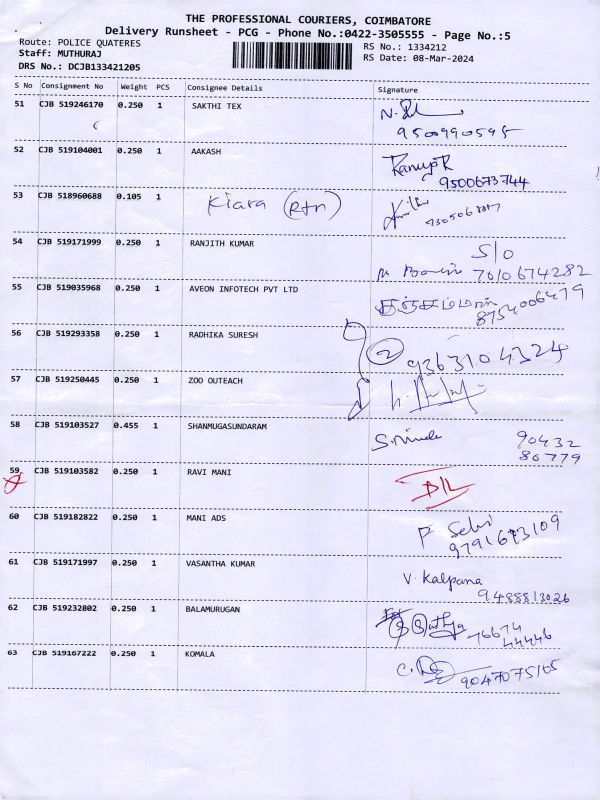 THE PROFESSIONAL COURIERS, COIMBATORE
Delivery Runsheet - PCG - Phone No.:0422-3505555 - Page No.:5
Route: POLICE QUATERES
RS No.: 1334212
Staff: MUTHURAJ
RS Date: 08-Mar-2024
DRS No.: DCJB133421205
S No Consignment No Weight PCS Consignee Details Signature
51 CJB 519246170 0.250 1 SAKTHI TEX
9500990595
52 CJB 519104001 0.250 1 AAKASH
9500673744
53 CJB 518960688 0.105 1 Kiara (Rtn)
54 CJB 519171999 0.250 1 RANJITH KUMAR S/O
7010674282
55 CJB 519035968 0.250 1 AVEON INFOTECH PVT LTD
8754006479
56 CJB 519293358 0.250 1 RADHIKA SURESH
2 9363104324
57 CJB 519250445 0.250 1 ZOO OUTEACH
58 CJB 519103527 0.455 1 SHANMUGASUNDARAM
90432
80779
59 CJB 519103582 0.250 1 RAVI MANI D/L
60 CJB 519182822 0.250 1 MANI ADS P Selvi
9791673109
61 CJB 519171997 0.250 1 VASANTHA KUMAR V. Kalpana
9488813026
62 CJB 519232802 0.250 1 BALAMURUGAN
76674
44446
63 CJB 519167222 0.250 1 KOMALA
9047075105